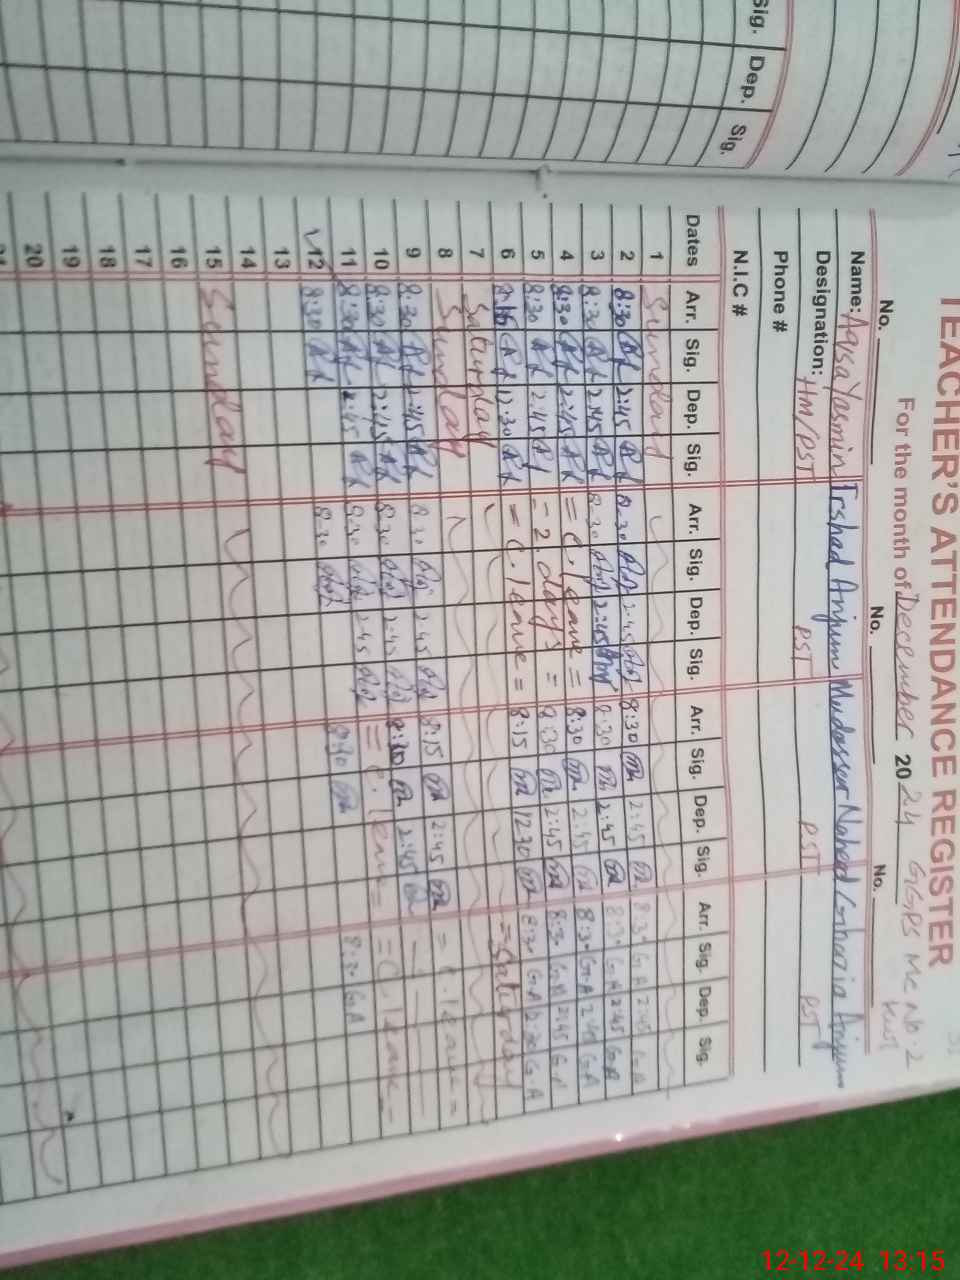 Sig. Dep. Sig.
TEACHER'S ATTENDANCE REGISTER
For the month of December 2024 GGPS MC No. 2
No. No. No.
Name: Aqsa Yasmin Irshad Anjum Mudassar Naheed Anjum
Designation: HM/PST PST PST PST
Phone #
N.I.C #
Dates Arr. Sig. Dep. Sig. Arr. Sig. Dep. Sig. Arr. Sig. Dep. Sig. Arr. Sig. Dep. Sig.
1 Sunday
2 8:30 2:45 8:30 2:45 8:30 2:45 8:30 G.A 2:45 G.A
3 8:30 2:45 8:30 2:45 8:30 2:45 8:30 G.A 2:45 G.A
4 8:30 2:45 = C. leave = 8:30 2:45 8:30 G.A 2:45 G.A
5 8:30 2:45 = 2 days = 8:30 2:45 8:30 G.A 2:45 G.A
6 8:15 12:30 = C. leave = 8:15 12:30 8:30 G.A 12:30 G.A
7 Saturday = Saturday
8 Sunday
9 8:30 2:45 8:30 2:45 8:15 2:45 = C. leave =
10 8:30 2:45 8:30 2:45 8:30 2:45
11 8:30 2:45 8:30 2:45 = C. leave = = C. leave =
12 8:30 8:30 8:30 8:30 G.A
13
14
15 Sunday
16
17
18
19
20
21
12-12-24 13:15